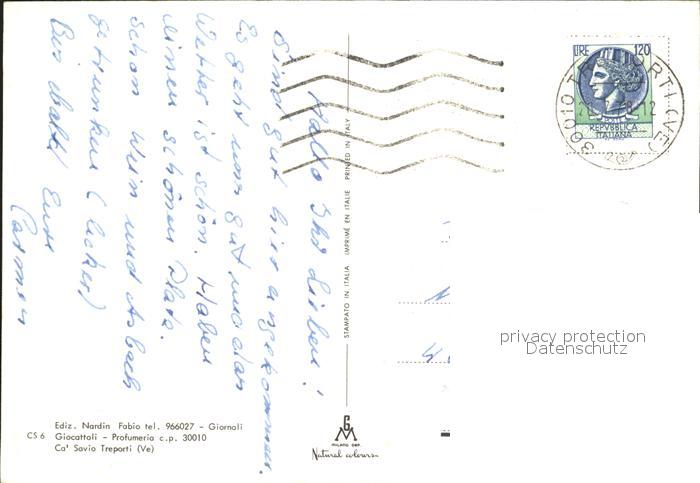 Hallo Ihr Lieben!
Sind gut hier angekommen.
Es geht uns gut und das
Wetter ist schön. Haben
einen schönen Platz.
schon Wein und Asbach
getrunken (lecker)
Bis bald! Eure
Carmen
LIRE 120
REPVBBLICA
ITALIANA
30010 TREPORTI (VE)
STAMPATO IN ITALIA IMPRIMÉ EN ITALIE PRINTED IN ITALY
privacy protection
Datenschutz
CS 6
Ediz. Nardin Fabio tel. 966027 - Giornali
Giocattoli - Profumeria c.p. 30010
Ca' Savio Treporti (Ve)
G
M
MILANO DEP.
Natural colours